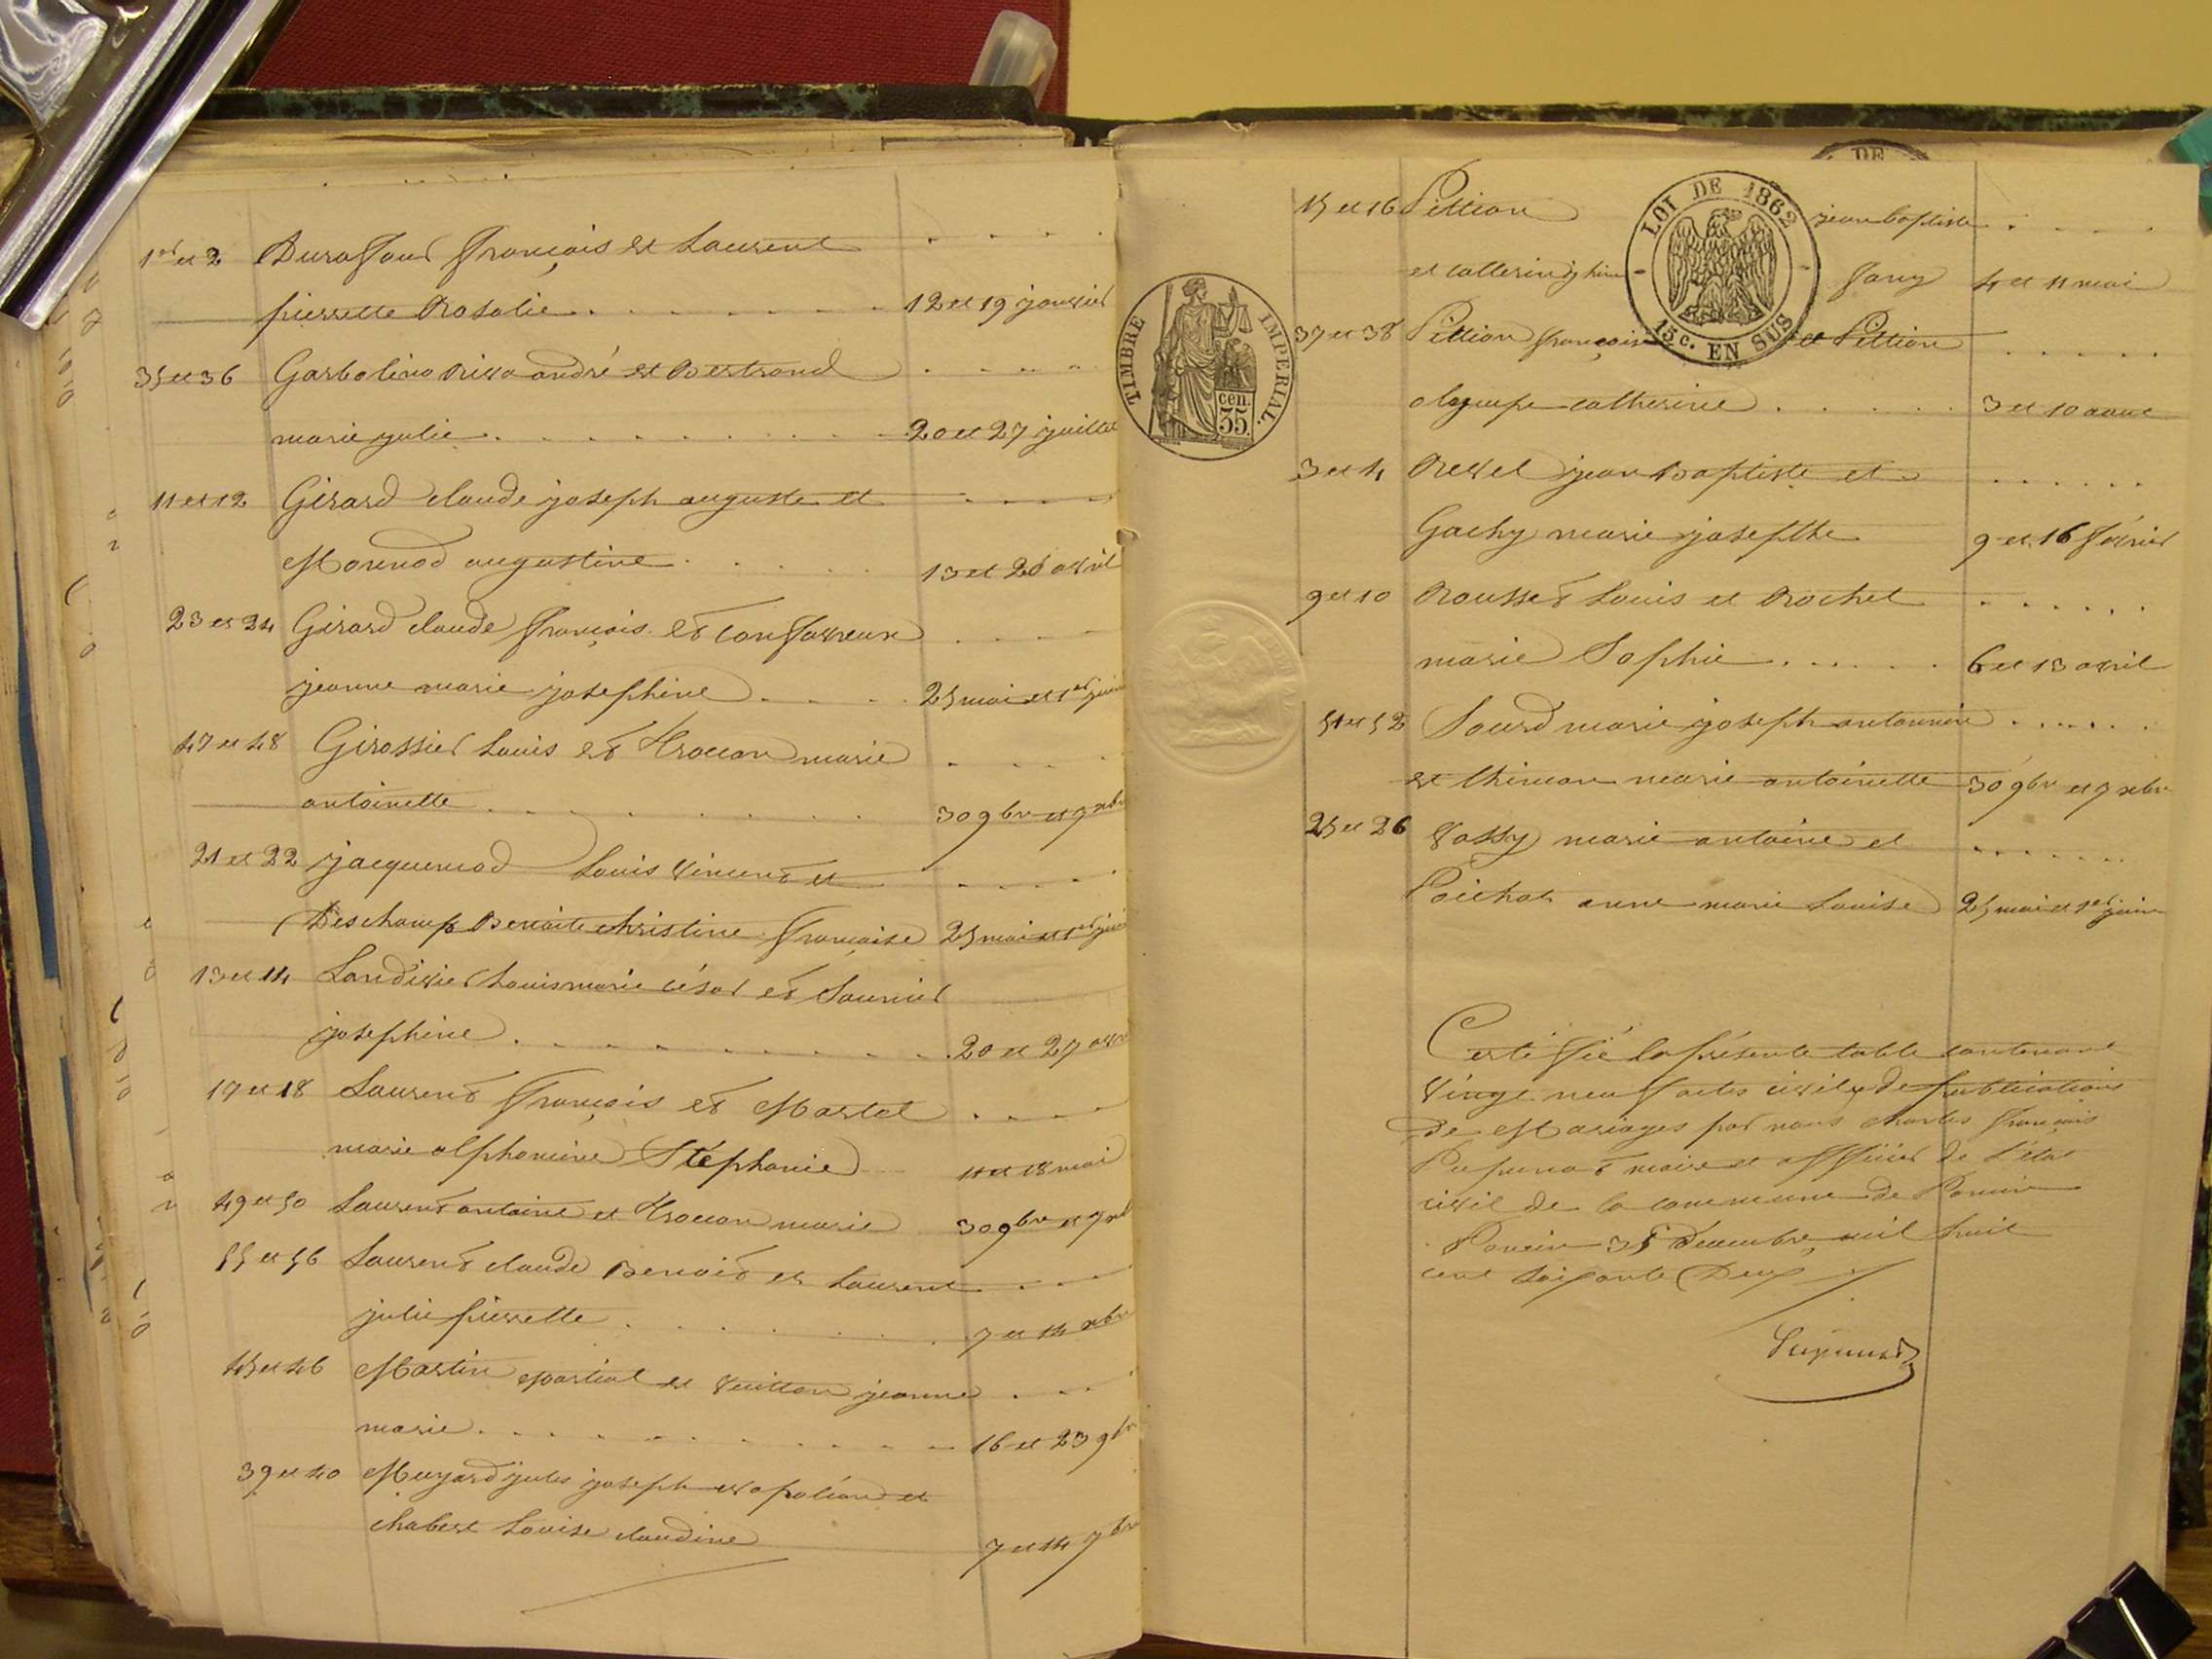 1er et 2 Duraffour françois et Laurent
pierrette Rosalie 12 et 19 janvier
35 et 36 Garbolino Riva andré et Bertrand
marie julie 20 et 27 juillet
11 et 12 Girard claude joseph auguste et
Monnod augustine 13 et 20 avril
23 et 24 Girard claude françois et
jeanne marie josephine 25 mai et 1er juin
47 et 48 Girossier Louis et Troccon marie
antoinette 30 9bre et 7 xbre
21 et 22 jacquemod Louis Vincent et
Deschamp Benoite christine françoise 25 mai et 1er juin
13 et 14 Landivier Louis marie césar et Saunier
josephine 20 et 27 avril
17 et 18 Laurent françois et Martel
marie alphonsine Stéphanie 11 et 18 mai
49 et 50 Laurent antoine et Troccon marie 30 9bre et 7 xbre
55 et 56 Laurent claude Benoit et Laurent
julie pierrette 7 et 14 xbre
45 et 46 Martin Martial et Vuitton jeanne
marie 16 et 23 9bre
39 et 40 Muyard jules joseph Napoléon et
chabert Louise claudine 7 et 14 7bre
TIMBRE IMPERIAL.
cen.
35.
LOI DE 1862
15c. EN SUS
DE
15 et 16 Pittion jean baptiste
et fany 4 et 11 mai
37 et 38 Pittion françois et Pittion
olympe catherine 3 et 10 aout
3 et 4 Revel jean Baptiste et
Gachy marie josephte 9 et 16 février
9 et 10 Rousset Louis et Rochet
marie Sophie 6 et 13 avril
51 et 52 Sourd marie joseph antonnin
et thineon marie antoinette 30 9bre et 7 xbre
25 et 26 Vassy marie antoine et
Poichat anne marie Louise 25 mai et 1er juin
Certifié la présente table contenant
Vingt neuf actes civils de publications
de Mariages par nous charles françois
maire et officier de l'état
civil de la commune de Poncin
Poncin 31 Decembre mil huit
cent soixante Deux